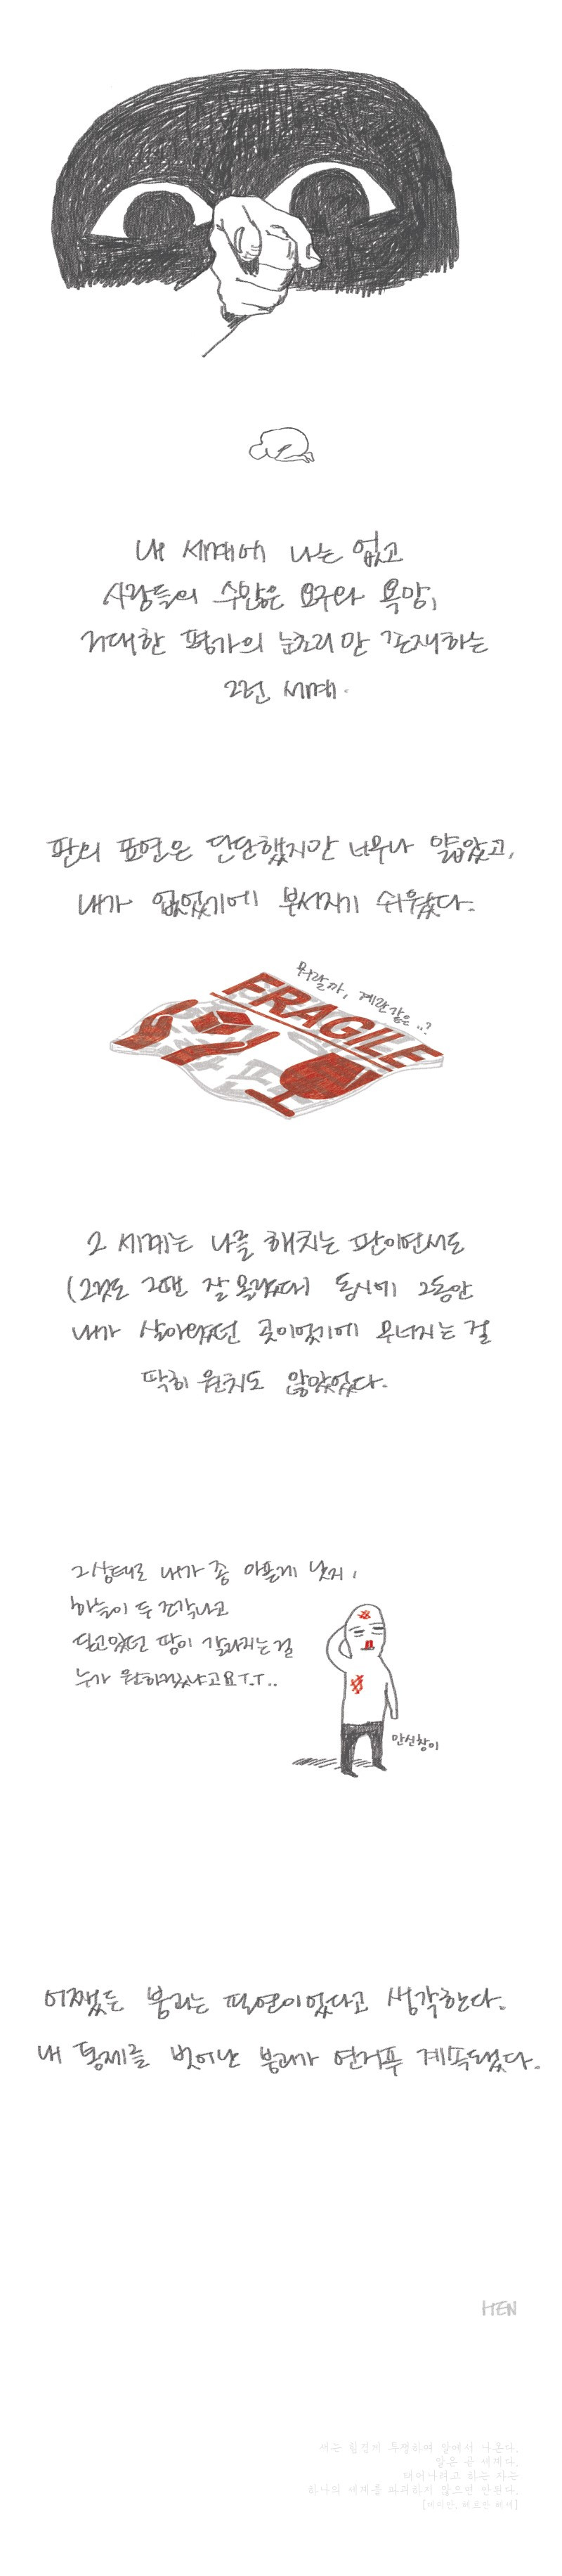 내 세계에 나는 없고
사람들의 수많은 요구와 욕망,
거대한 평가의 눈초리만 존재하는
그런 세계.
판의 표면은 단단했지만 너무나 얇았고,
내가 없었기에 부서지기 쉬웠다.
뭐랄까, 계란같은..?
FRAGILE
그 세계는 나를 해치는 판이면서도
(그것도 그땐 잘 몰랐다) 동시에 그동안
내가 살아왔던 곳이었기에 무너지는 걸
딱히 원치도 않았었다.
그 상태로 내가 좀 아픈게 낫지,
하늘이 두 조각나고
딛고있던 땅이 갈라지는걸
누가 원하겠냐고요T.T..
만신창이
어쨌든 붕괴는 필연이었다고 생각한다.
내 통제를 벗어난 붕괴가 연거푸 계속됐다.
HEN
새는 힘겹게 투쟁하여 알에서 나온다.
알은 곧 세계다.
태어나려고 하는 자는
하나의 세계를 파괴하지 않으면 안된다.
[데미안, 헤르만 헤세]